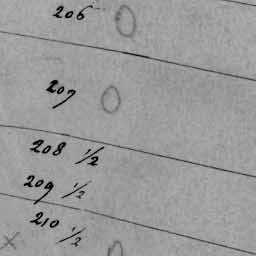 206 0
207 0
208 1/2
209 1/2
210 1/2
x 0